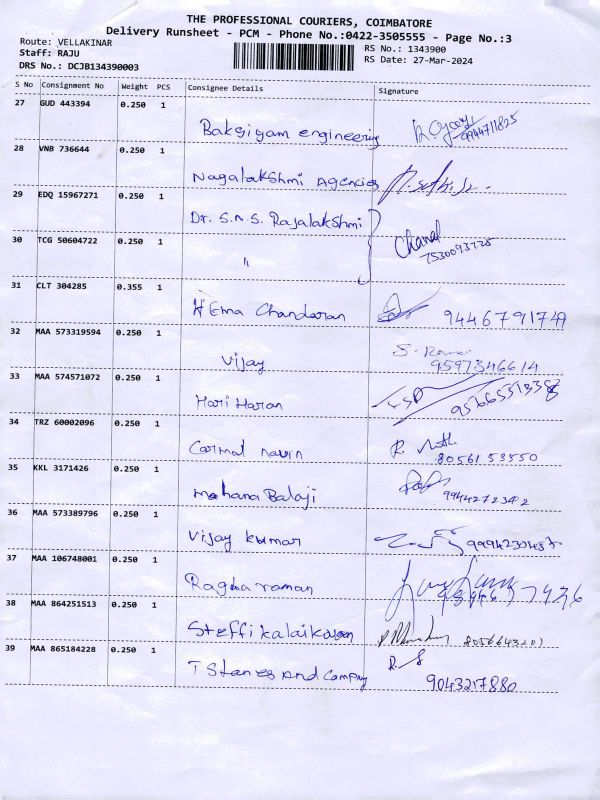 THE PROFESSIONAL COURIERS, COIMBATORE
Delivery Runsheet - PCM - Phone No.:0422-3505555 - Page No.:3
Route: VELLAKINAR RS No.: 1343900
Staff: RAJU RS Date: 27-Mar-2024
DRS No.: DCJB134390003
S No Consignment No Weight PCS Consignee Details Signature
27 GUD 443394 0.250 1
Baksiyam engineering 9944711825
28 VNB 736644 0.250 1
Nagalakshmi Agencies
29 EDQ 15967271 0.250 1
Dr. S.N.S. Rajalakshmi
30 TCG 50604722 0.250 1
" 7530093725
31 CLT 304285 0.355 1
HEma Chandaran 9446791749
32 MAA 573319594 0.250 1
Vijay 9597346614
33 MAA 574571072 0.250 1
Hari Haran
34 TRZ 60002096 0.250 1
Carmal navin 8056153550
35 KKL 3171426 0.250 1
mohana Balaji
36 MAA 573389796 0.250 1
Vijay kumar
37 MAA 106748001 0.250 1
Ragha raman
38 MAA 864251513 0.250 1
Steffikalaikaran
39 MAA 865184228 0.250 1
T Stanes And Company 9043217880